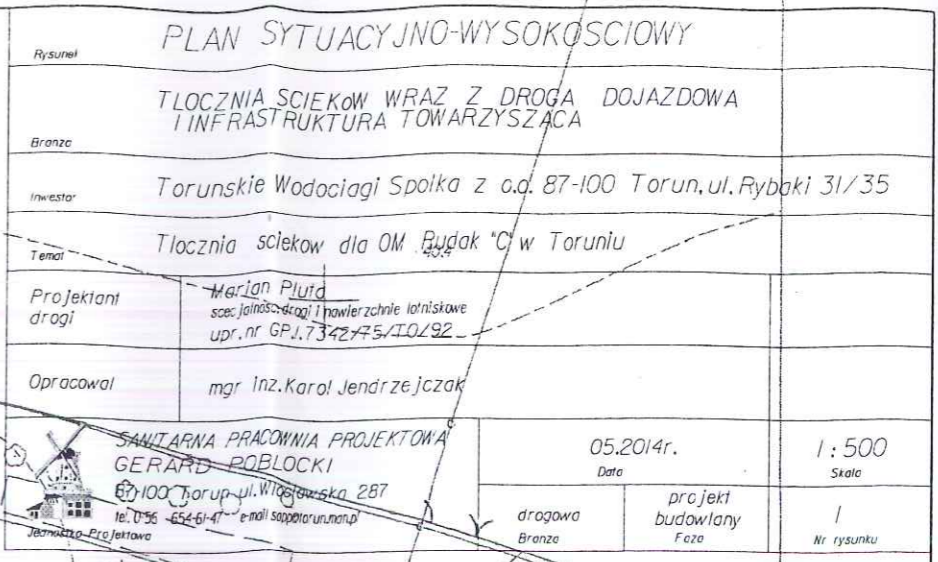 PLAN SYTUACYJNO-WYSOKOSCIOWY
Rysunek
TLOCZNIA SCIEKOW WRAZ Z DROGA DOJAZDOWA
I INFRASTRUKTURA TOWARZYSZACA
Branza
Inwestor Torunskie Wodociagi Spolka z o.o. 87-100 Torun, ul. Rybaki 31/35
Temat Tlocznia sciekow dla OM Rudak "C" w Toruniu
Projektant Marian Pluta
drogi specjalnosc: drogi i nawierzchnie lotniskowe
upr. nr GP.I.7342/75/TO/92
Opracowal mgr inz. Karol Jendrzejczak
SANITARNA PRACOWNIA PROJEKTOWA
GERARD POBLOCKI
87-100 Torun ul. Wloclawska 287
tel. 0-56 654-61-47 e-mail
Jednostka Projektowa
05.2014r.
Data
1:500
Skala
drogowa
Branza
projekt
budowlany
Faza
1
Nr rysunku